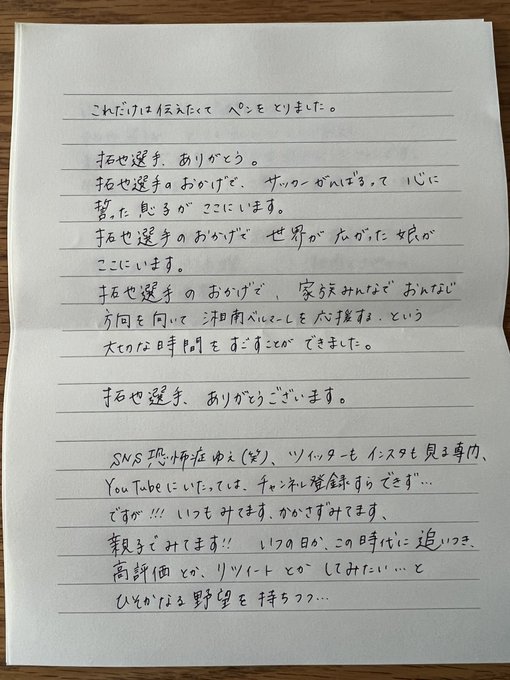 これだけは伝えたくて ペンをとりました。
拓也選手、ありがとう。
拓也選手のおかげで、サッカーがんばるって 心に
誓った息子がここにいます。
拓也選手のおかげで 世界が広がった娘が
ここにいます。
拓也選手のおかげで、家族みんなで おんなじ
方向を向いて 湘南ベルマーレを応援する、という
大切な時間をすごすことができました。
拓也選手、ありがとうございます。
SNS恐怖症ゆえ(笑)、ツイッターもインスタも見る専門、
YouTubeにいたっては、チャンネル登録すらできず…
ですが!!! いつもみてます、かかさずみてます、
親子でみてます!! いつの日か、この時代に追いつき、
高評価とか、リツイートとか してみたい…と
ひそかなる野望を持ちつつ…